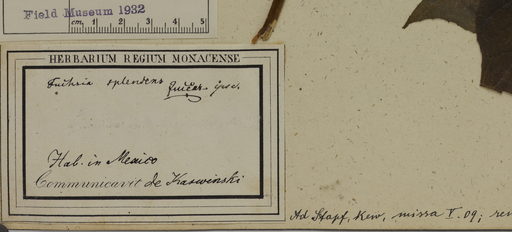 Field Museum 1932
cm. 1 2 3 4 5
HERBARIUM REGIUM MONACENSE
Fuchsia splendens Zuccar. ipse.
Hab. in Mexico
Communicavit de Karwinski
Ad Stapf, Kew, missa V. 09; rem